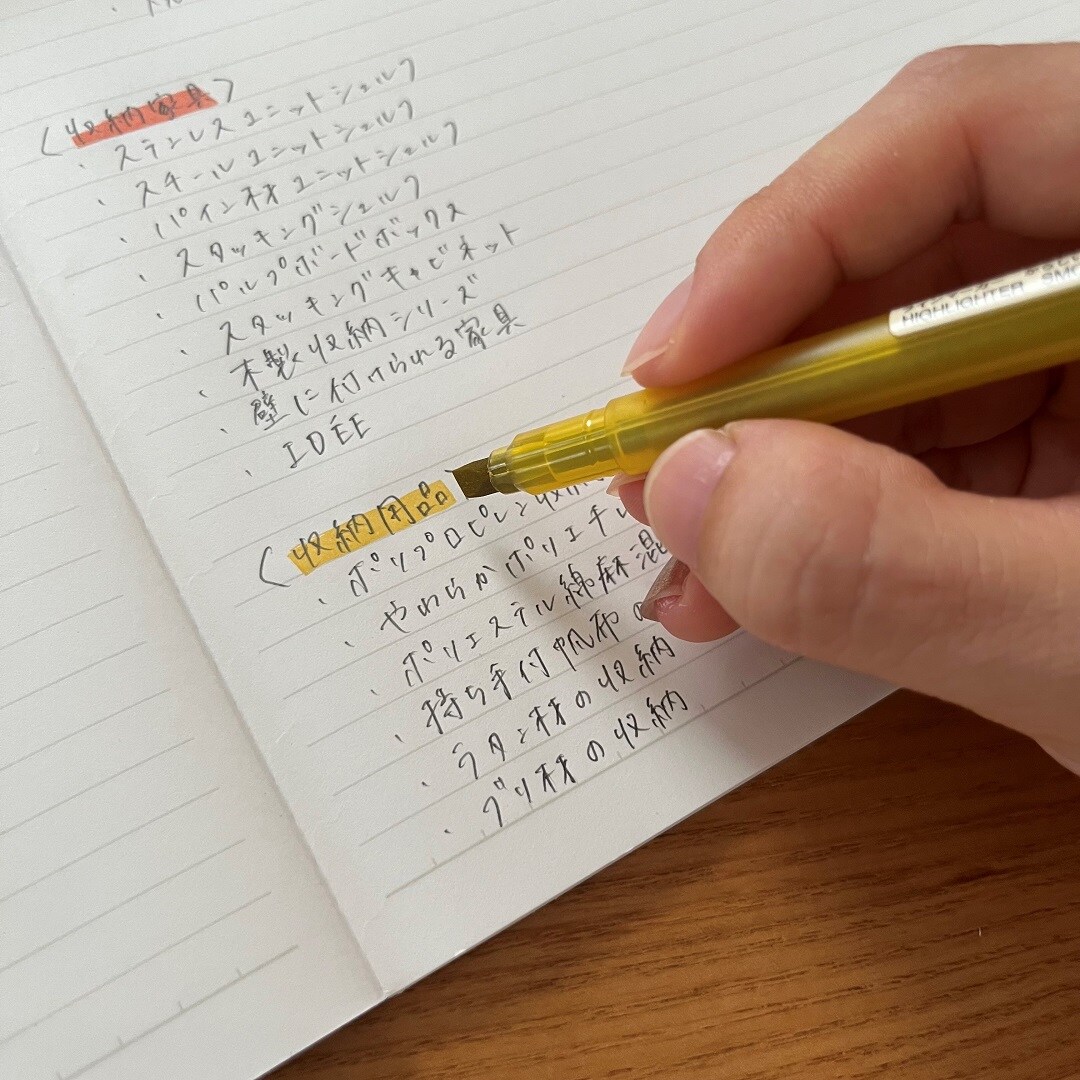 〈収納家具〉
・ステンレスユニットシェルフ
・スチールユニットシェルフ
・パイン材ユニットシェルフ
・スタッキングシェルフ
・パルプボードボックス
・スタッキングキャビネット
・木製収納シリーズ
・壁に付けられる家具
・IDÉE
〈収納用品
・ポリプロピレン収
・やわらかポリエチレ
・ポリエステル綿麻混
・持ち手付帆布の
・ラタン材の収納
・ブリ材の収納
HIGHLIGHTER SMO